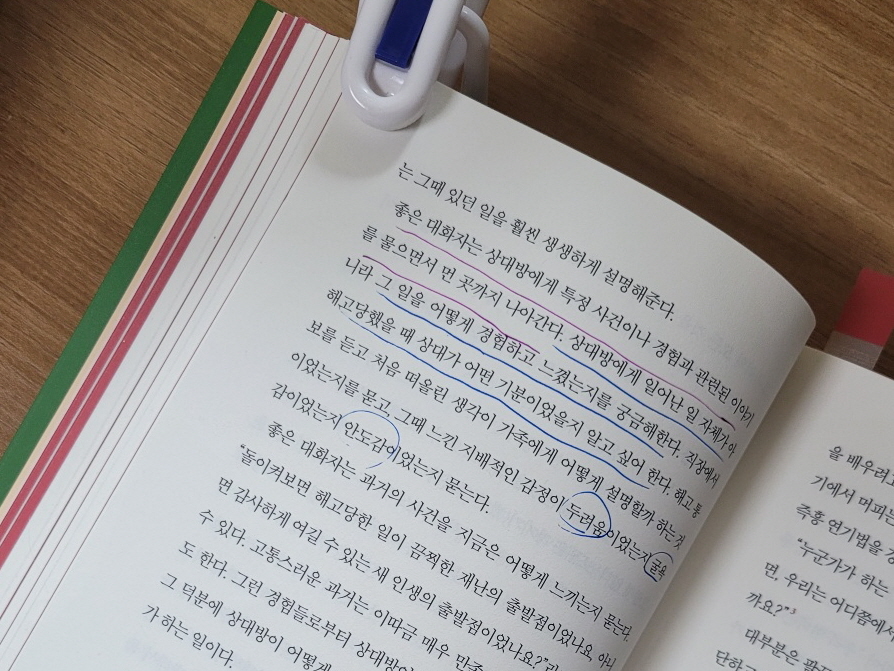 는 그때 있던 일을 훨씬 생생하게 설명해준다.
좋은 대화자는 상대방에게 특정 사건이나 경험과 관련된 이야기
를 물으면서 먼 곳까지 나아간다. 상대방에게 일어난 일 자체가 아
니라 그 일을 어떻게 경험하고 느꼈는지를 궁금해한다. 직장에서
해고당했을 때 상대가 어떤 기분이었을지 알고 싶어 한다. 해고 통
보를 듣고 처음 떠올린 생각이 가족에게 어떻게 설명할까 하는 것
이었는지를 묻고, 그때 느낀 지배적인 감정이 두려움이었는지 굴욕
감이었는지 안도감이었는지 묻는다.
좋은 대화자는 과거의 사건을 지금은 어떻게 느끼는지 묻는다.
“돌이켜보면 해고당한 일이 끔찍한 재난의 출발점이었나요, 아니
면 감사하게 여길 수 있는 새 인생의 출발점이었나요?”
수 있다. 고통스러운 과거는 이따금 매우
도 한다. 그런 경험들로부터 상대방이
그 덕분에 상대방이 어떻게
가 하는 일이다.
을 배우려고
기에서 머피는
즉흥 연기법을
“누군가가 하는
면, 우리는 어디쯤에서
까요?”³
대부분은